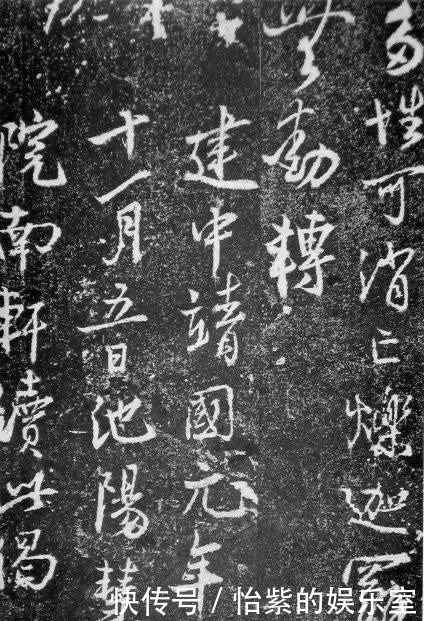 多性可消亡爍迦羅
無動轉
建中靖國元年
十一月五日池陽
院南軒此偈
快传号 / 怡紫的娱乐室